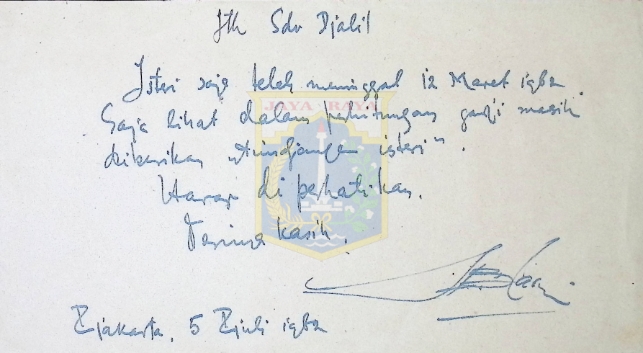 Jth Sdr Djalil
Isteri saja telah meninggal 12 Maret 1982.
Saja lihat dalam perhitungan gadji masih
diberikan "tundjangan isteri".
Harap di perhatikan.
Terima kasih.
Djakarta, 5 Djuli 1982
JAYA RAYA